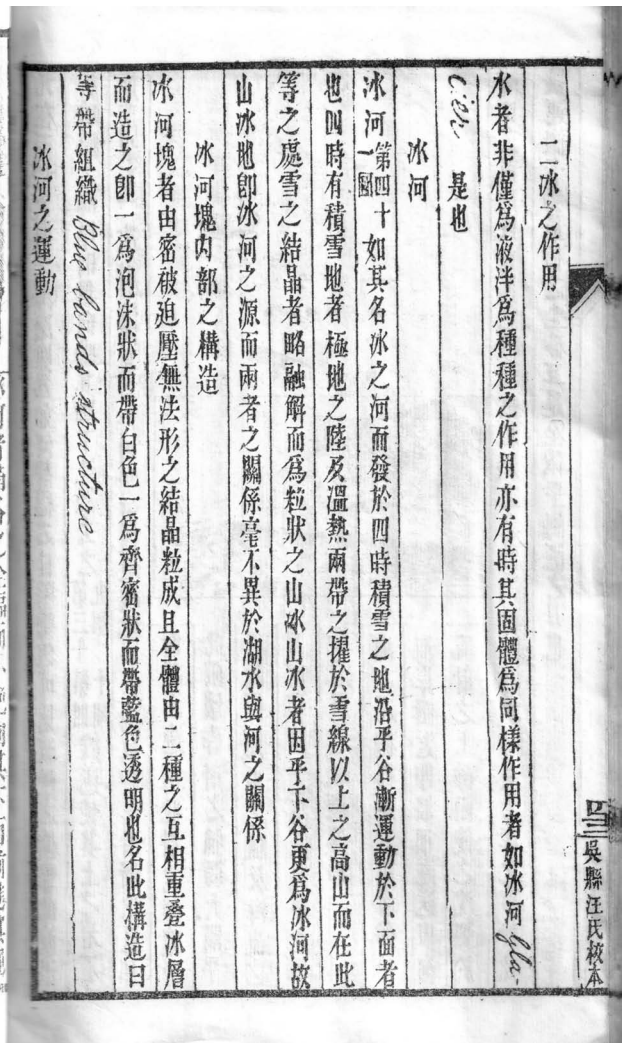 二冰之作用
水者非僅爲液泮爲種種之作用亦有時其固體爲同樣作用者如冰河 Gla-
cier 是也
冰河
冰河第四十一圖如其名冰之河而發於四時積雪之地沿乎谷漸運動於下面者
也四時有積雪地者極地之陸及溫熱兩帶之擢於雪線以上之高山而在此
等之處雪之結晶者略融解而爲粒狀之山冰山冰者因乎下谷更爲冰河故
山冰地卽冰河之源而兩者之關係毫不異於湖水與河之關係
冰河塊內部之構造
冰河塊者由密被迫壓無法形之結晶粒成且全體由二種之互相重疊冰層
而造之卽一爲泡沫狀而帶白色一爲齊密狀而帶藍色透明也名此構造曰
等帶組織 Blue bands structure
冰河之運動
吳縣汪氏校本